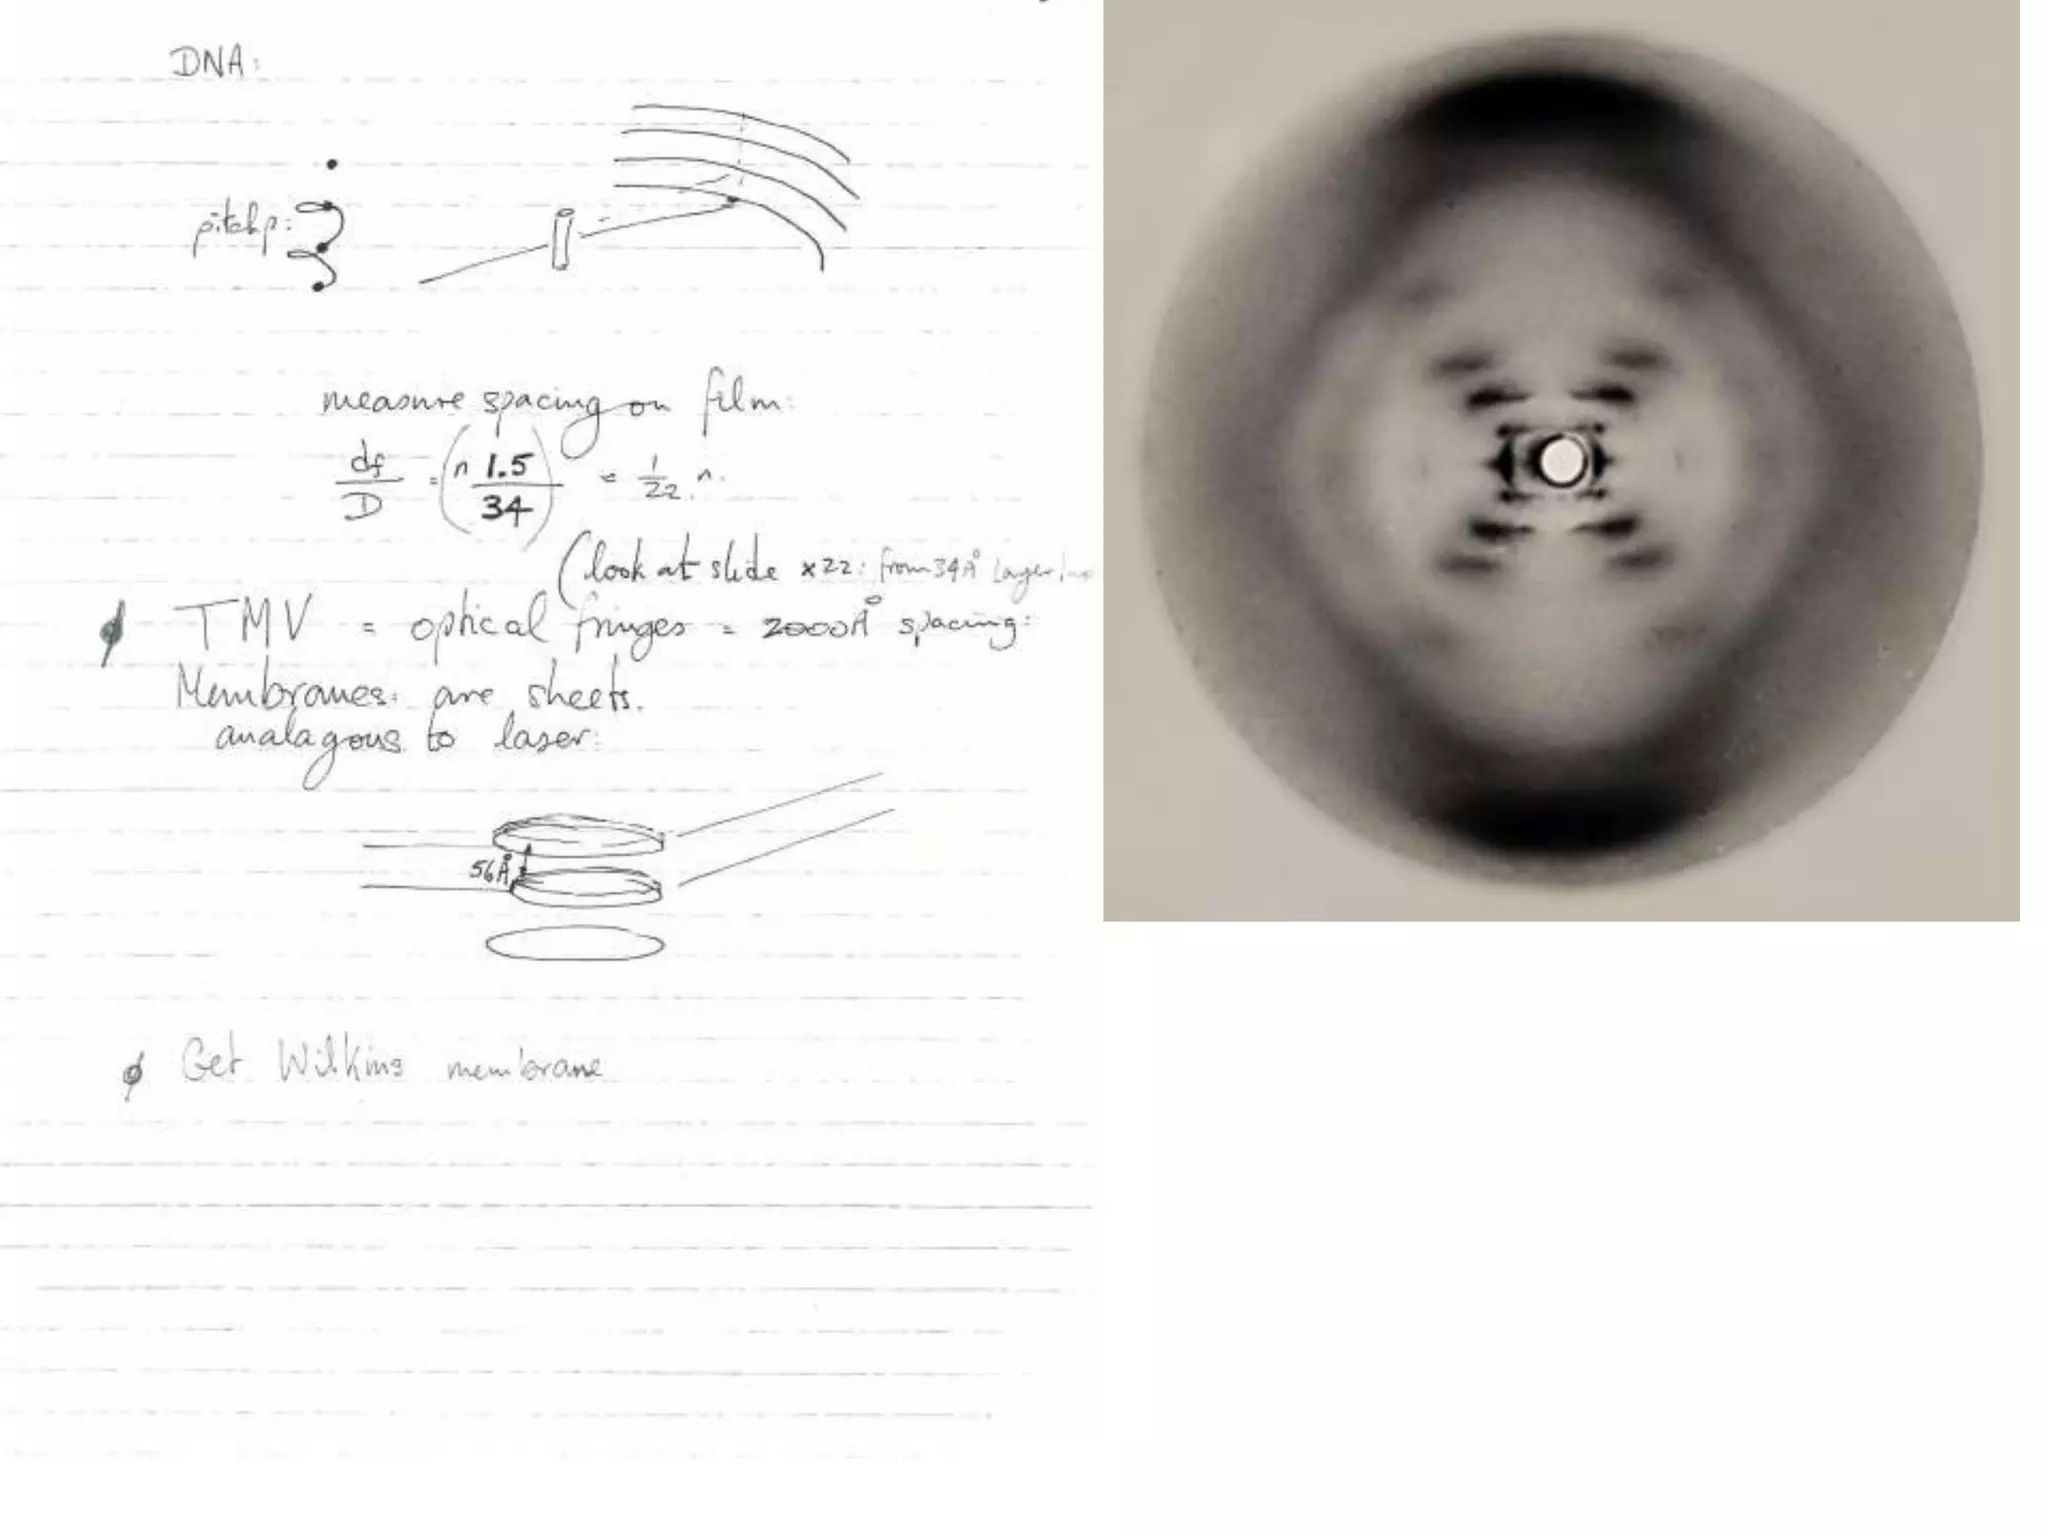 DNA:
pitch p:
measure spacing on film:
df/D = (n 1.5/34) = 1/22 n.
(look at slide x22: from 34Å Layer
TMV = optical fringes = 2000Å spacing:
Membranes: are sheets.
analagous to laser:
56Å
Get Wilkins membrane